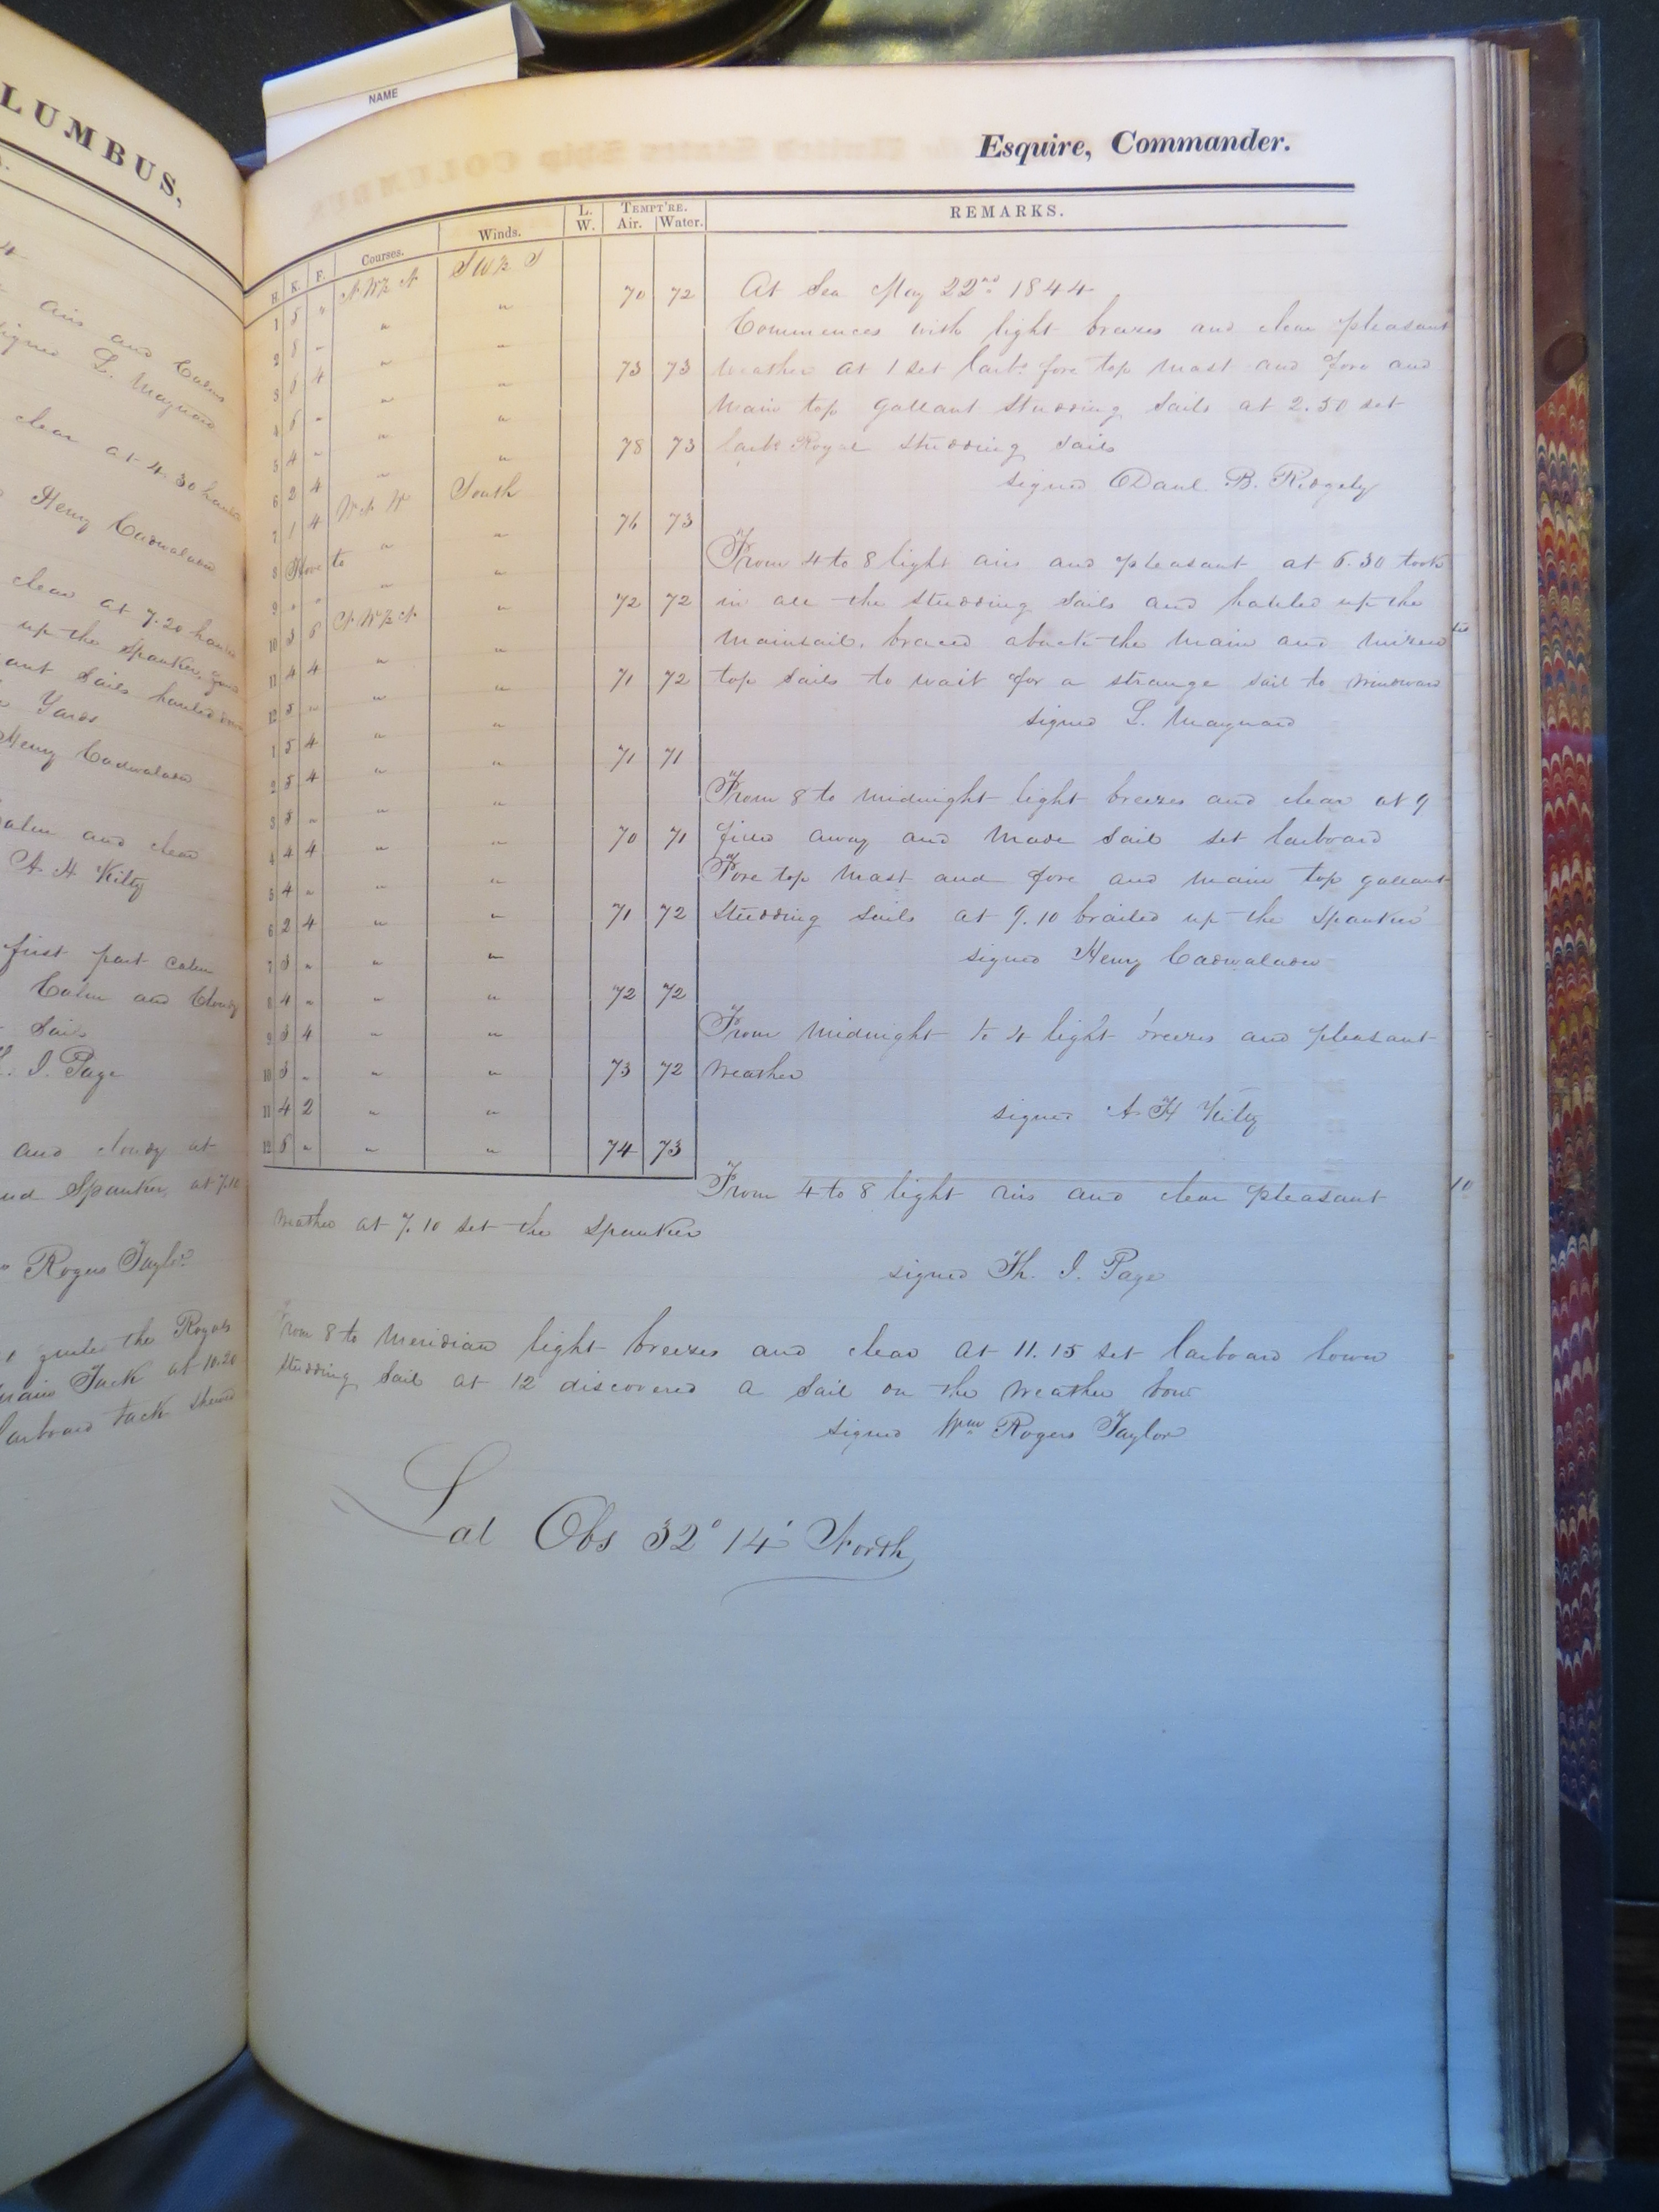 LUMBUS,
NAME
Esquire, Commander.
H. K. F. Courses. Winds. L. W. TEMPT'RE. Air. Water. REMARKS.
airs and Calms
signed L. Maynard
clear at 4.30 hauled
Henry Cadwalader
clear at 7.20 hauled
up the Spanker,
ant Sails hauled down
Yards
Henry Cadwalader
alm and clear
A. H Kilty
first part calm
Calm and Cloudy
Sails
I. Page
and cloudy at
and Spanker, at 7.10
Rogers Taylor
the Royals
main Tack at 10.20
larboard tack
N W b N S W b S
1 5 " " " 70 72
2 5 " " "
3 5 4 " " 73 73
4 5 " " "
5 4 " " " 78 73
6 2 4 " South
7 1 4 W N W " 76 73
8 Hove to " "
9 " " " " 72 72
10 3 6 N W b N "
11 4 4 " " 71 72
12 5 " " "
1 5 4 " " 71 71
2 5 4 " "
3 5 " " " 70 71
4 4 4 " "
5 4 " " " 71 72
6 2 4 " "
7 3 " " "
8 4 " " " 72 72
9 3 4 " "
10 3 " " " 73 72
11 4 2 " "
12 5 " " " 74 73
At Sea May 22nd 1844
Commences with light breezes and clear pleasant
weather at 1 set larb. fore top mast and fore and
main top gallant studding sails at 2.30 set
larb Royal studding sails
signed Danl. B. Ridgely
From 4 to 8 light airs and pleasant at 6.30 took
in all the studding sails and hauled up the
mainsail, braced aback the main and mizen
top sails to wait for a strange sail to windward
signed L. Maynard
From 8 to midnight light breezes and clear at 9
filled away and made sail set larboard
Fore top mast and fore and main top gallant
studding sails at 9.10 brailed up the spanker
signed Henry Cadwalader
From midnight to 4 light breezes and pleasant
weather
signed A. H Kilty
From 4 to 8 light airs and clear pleasant
weather at 7.10 set the spanker
signed Th. I. Page
From 8 to Meridian light breezes and clear at 11.15 set larboard lower
studding sail at 12 discovered a sail on the weather bow
signed Wm Rogers Taylor
Lat Obs 32° 14' North
10